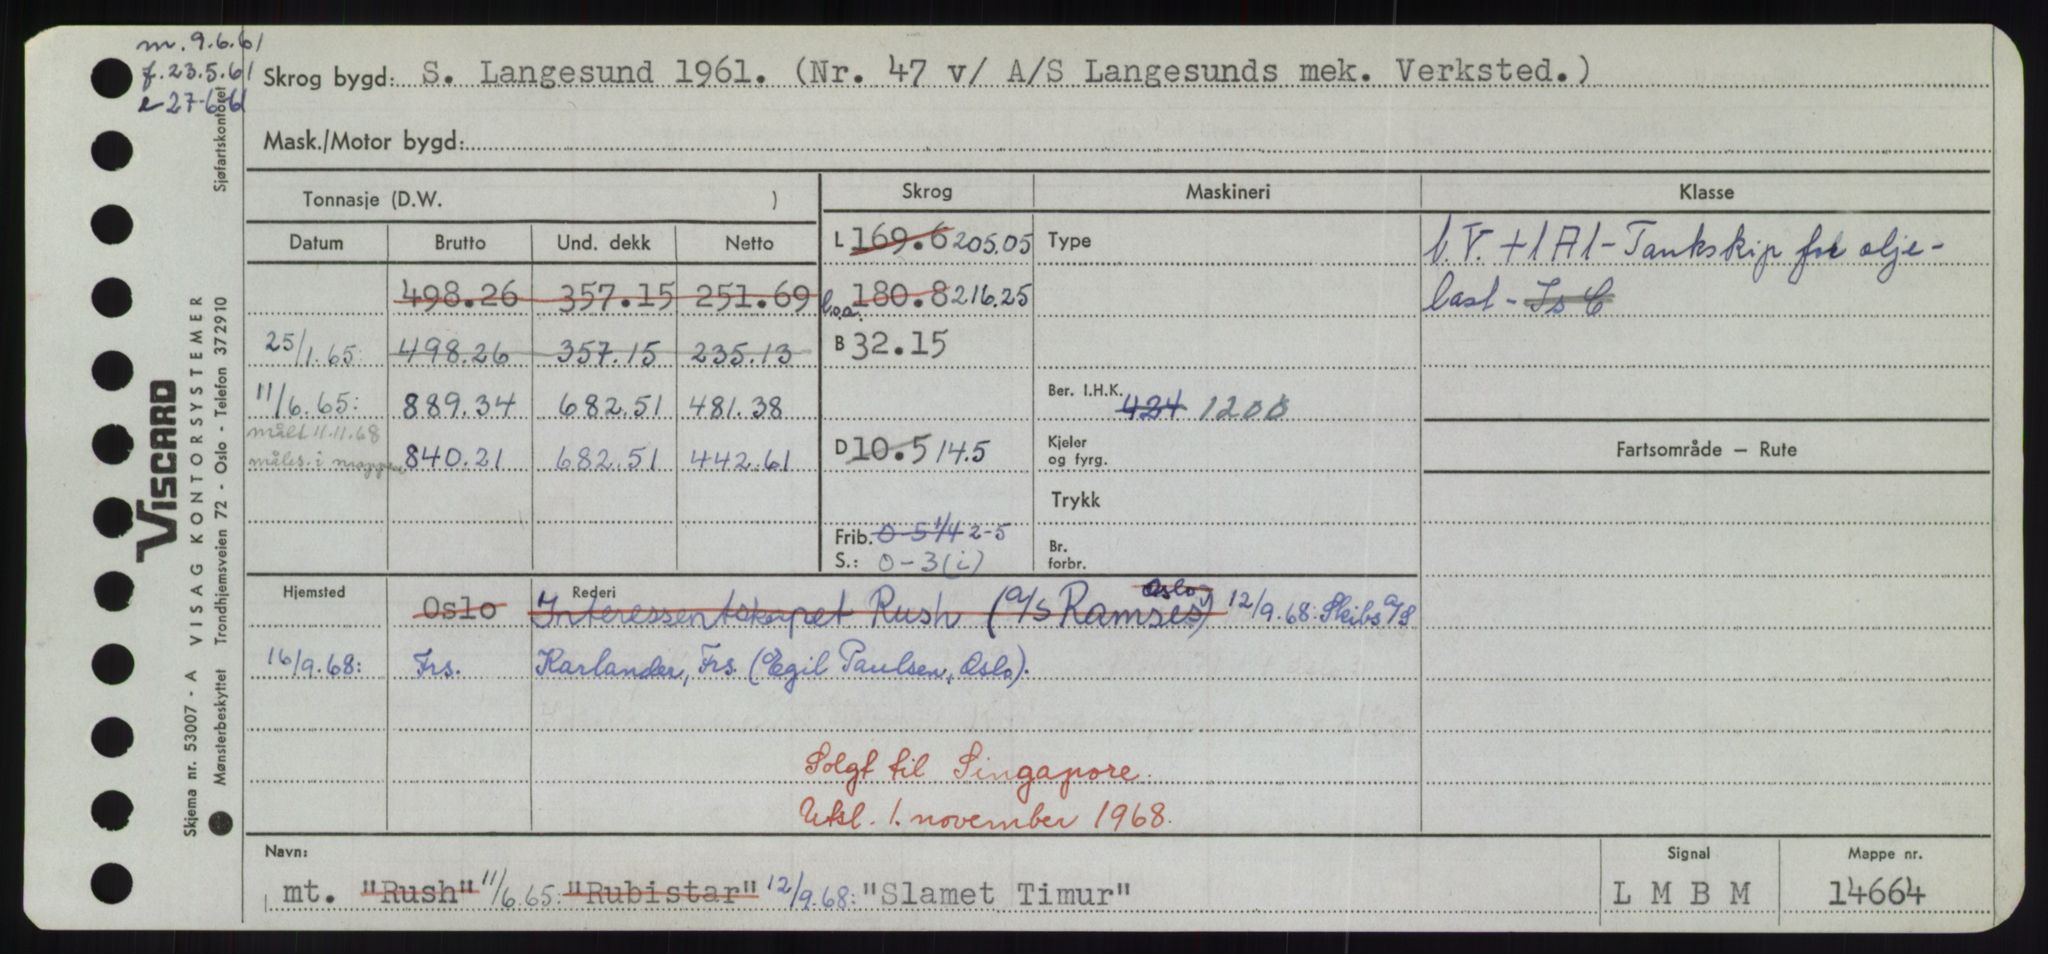 m. 9.6.61
f. 23.5.61
e 27-6-61
Skrog bygd: S. Langesund 1961. (Nr. 47 v/ A/S Langesunds mek. Verksted.)
Mask./Motor bygd:
Tonnasje (D.W. )
Skrog Maskineri Klasse
Datum Brutto Und. dekk Netto
L 169.6 205.05 Type
b.V. +1A1-Tankskip for olje-
498.26 357.15 251.69 l.o.a. 180.8 216.25
last - Is C
25/1.65: 498.26 357.15 235.13 B 32.15
11/6.65: 889.34 682.51 481.38
Ber. I.H.K. 424 1200
målt 11.11.68
måles. i mappen 840.21 682.51 442.61 D 10.5 14.5
Kjeler og fyrg.
Fartsområde – Rute
Trykk
Frib. 0-5 1/4 2-5
S.: 0-3(i)
Br. forbr.
Hjemsted Rederi
Oslo Interessentskapet Rush (A/S Ramses, Oslo) 12/9.68: Skibs A/S
16/9.68: Frs. Karlander, Frs. (Egil Paulsen, Oslo).
Solgt til Singapore.
Utsl. 1. november 1968.
Navn: Signal Mappe nr.
mt. "Rush" 11/6.65: "Rubistar" 12/9.68: "Slamet Timur" L M B M 14664
VISCARD
Skjema nr. 53007 - A VISAG KONTORSYSTEMER
Mønsterbeskyttet Trondhjemsveien 72 - Oslo - Telefon 372910 Sjøfartskontoret